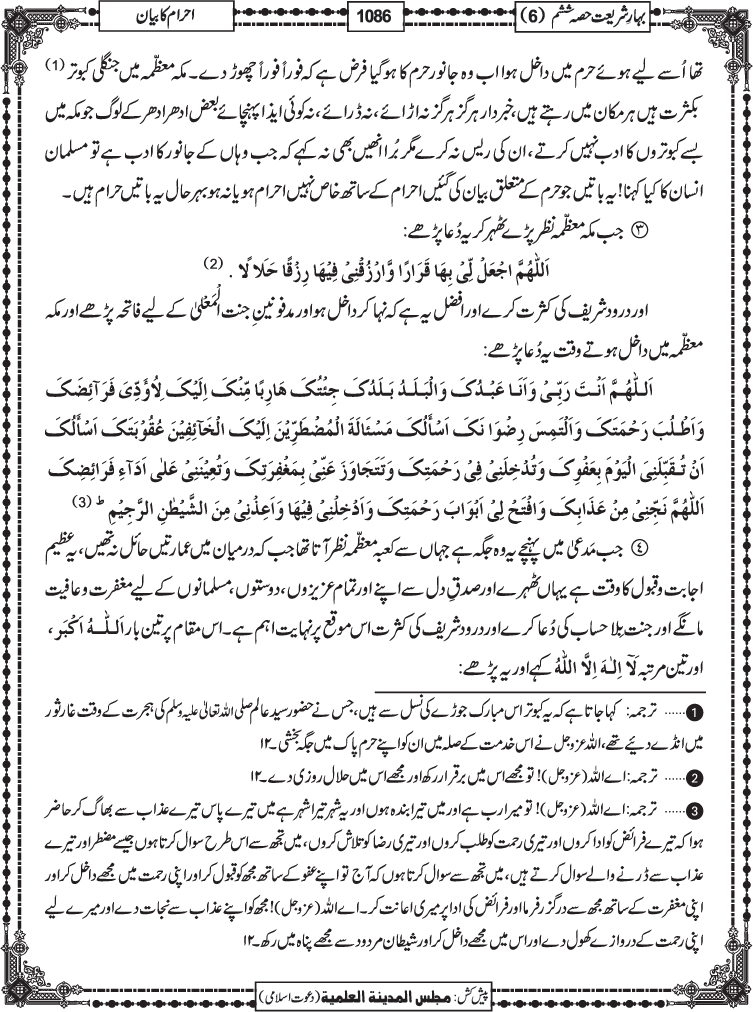 بہارِ شریعت حصہ ششم (6)
1086
احرام کا بیان
تھا اُسے لیے ہوئے حرم میں داخل ہوا اب وہ جانور حرم کا ہوگیا فرض ہے کہ فوراً فوراً چھوڑ دے۔ مکہ معظمہ میں جنگلی کبوتر (1)
بکثرت ہیں ہر مکان میں رہتے ہیں، خبردار ہرگز ہرگز نہ اڑائے، نہ ڈرائے، نہ کوئی ایذا پہنچائے بعض ادھر ادھر کے لوگ جو مکہ میں
بسے کبوتروں کا ادب نہیں کرتے، ان کی ریس نہ کرے مگر بُرا انھیں بھی نہ کہے کہ جب وہاں کے جانور کا ادب ہے تو مسلمان
انسان کا کیا کہنا! یہ باتیں جو حرم کے متعلق بیان کی گئیں احرام کے ساتھ خاص نہیں احرام ہو یا نہ ہو بہر حال یہ باتیں حرام ہیں۔
③ جب مکہ معظّمہ نظر پڑے ٹھہر کر یہ دُعا پڑھے:
اَللّٰھُمَّ اجْعَلْ لِّیْ بِھَا قَرَارًا وَّارْزُقْنِیْ فِیْھَا رِزْقًا حَلَالًا . (2)
اور درود شریف کی کثرت کرے اور افضل یہ ہے کہ نہا کر داخل ہو اور مدفونینِ جنت الْمَعْلیٰ کے لیے فاتحہ پڑھے اور مکہ
معظّمہ میں داخل ہوتے وقت یہ دُعا پڑھے:
اَللّٰھُمَّ اَنْتَ رَبِّیْ وَاَنَا عَبْدُکَ وَالْبَلَدُ بَلَدُکَ جِئْتُکَ ھَارِبًا مِّنْکَ اِلَیْکَ لِاُؤَدِّیَ فَرَائِضَکَ
وَاَطْلُبَ رَحْمَتَکَ وَاَلْتَمِسَ رِضْوَا نَکَ اَسْأَلُکَ مَسْئَالَۃَ الْمُضْطَرِّیْنَ اِلَیْکَ الْخَائِفِیْنَ عُقُوْبَتَکَ اَسْأَلُکَ
اَنْ تُقَبِّلَنِیَ الْیَوْمَ بِعَفْوِکَ وَتُدْخِلَنِیْ فِیْ رَحْمَتِکَ وَتَتَجَاوَزَ عَنِّیْ بِمَغْفِرَتِکَ وَتُعِیْنَنِیْ عَلٰی اَدَآءِ فَرَائِضِکَ
اَللّٰھُمَّ نَجِّنِیْ مِنْ عَذَابِکَ وَافْتَحْ لِیْ اَبْوَابَ رَحْمَتِکَ وَاَدْخِلْنِیْ فِیْھَا وَاَعِذْنِیْ مِنَ الشَّیْطٰنِ الرَّجِیْمِ ط (3)
④ جب مَدعیٰ میں پہنچے یہ وہ جگہ ہے جہاں سے کعبہ معظّمہ نظر آتا تھا جب کہ درمیان میں عمارتیں حائل نہ تھیں، یہ عظیم
اجابت و قبول کا وقت ہے یہاں ٹھہرے اور صدقِ دل سے اپنے اور تمام عزیزوں، دوستوں، مسلمانوں کے لیے مغفرت و عافیت
مانگے اور جنت بلا حساب کی دُعا کرے اور درود شریف کی کثرت اس موقع پر نہایت اہم ہے۔ اس مقام پر تین بار اَللّٰہُ اَکْبَر،
اور تین مرتبہ لَآ اِلٰہَ اِلَّا اللّٰہُ کہے اور یہ پڑھے:
❶ ...... ترجمہ: کہا جاتا ہے کہ یہ کبوتر اس مبارک جوڑے کی نسل سے ہیں، جس نے حضور سید عالم صلی اللہ تعالیٰ علیہ وسلم کی ہجرت کے وقت غار ثور
میں انڈے دیے تھے، اللہ عزوجل نے اس خدمت کے صلہ میں ان کو اپنے حرم پاک میں جگہ بخشی۔ ۱۲
❷ ...... ترجمہ: اے اللہ (عزوجل)! تو مجھے اس میں برقرار رکھ اور مجھے اس میں حلال روزی دے۔ ۱۲
❸ ...... ترجمہ: اے اللہ (عزوجل)! تو میرا رب ہے اور میں تیرا بندہ ہوں اور یہ شہر تیرا شہر ہے میں تیرے پاس تیرے عذاب سے بھاگ کر حاضر
ہوا کہ تیرے فرائض کو ادا کروں اور تیری رحمت کو طلب کروں اور تیری رضا کو تلاش کروں، میں تجھ سے اس طرح سوال کرتا ہوں جیسے مضطر اور تیرے
عذاب سے ڈرنے والے سوال کرتے ہیں، میں تجھ سے سوال کرتا ہوں کہ آج تو اپنے عفو کے ساتھ مجھ کو قبول کر اور اپنی رحمت میں مجھے داخل کر اور
اپنی مغفرت کے ساتھ مجھ سے درگزر فرما اور فرائض کی ادا پر میری اعانت کر۔ اے اللہ (عزوجل)! مجھ کو اپنے عذاب سے نجات دے اور میرے لیے
اپنی رحمت کے دروازے کھول دے اور اس میں مجھے داخل کر اور شیطان مردود سے مجھے پناہ میں رکھ۔ ۱۲
پیش کش: مجلس المدینۃ العلمیۃ (دعوت اسلامی)